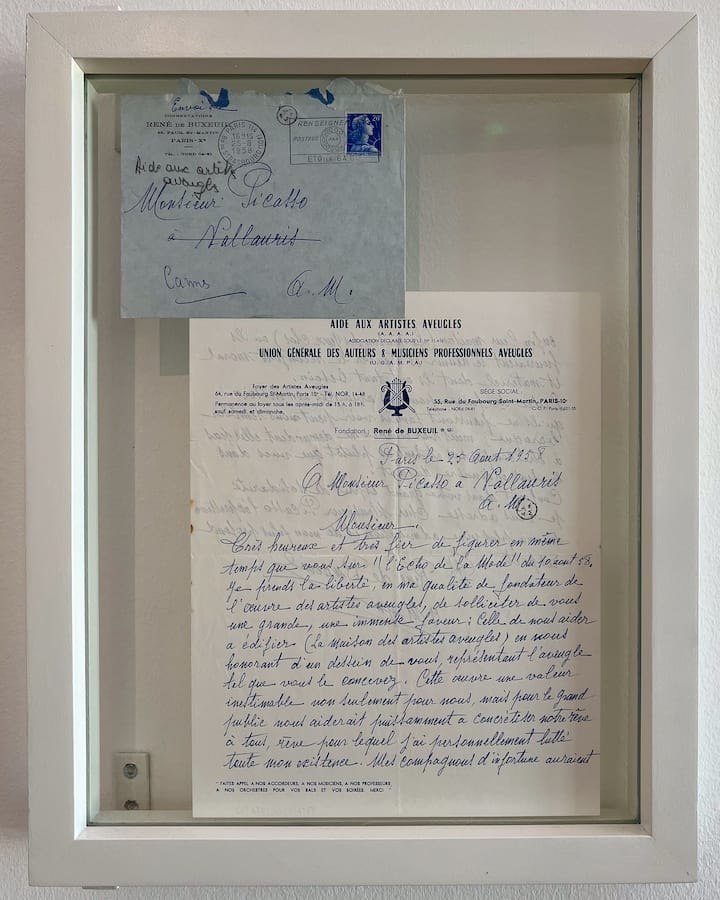 Envoi
CONSERVATOIRE
RENÉ DE BUXEUIL
PARIS-Xᵉ
Aide aux artistes
aveugles
PARIS
16H15
25-8
1958
RENSEIGNE
POSTAUX
20
Monsieur Picasso
à Vallauris
Cannes A.M.
AIDE AUX ARTISTES AVEUGLES
(A. A. A. A.)
ASSOCIATION DÉCLARÉE SOUS LE Nº
UNION GÉNÉRALE DES AUTEURS & MUSICIENS PROFESSIONNELS AVEUGLES
(U.G.A.M.P.A.)
Foyer des Artistes Aveugles
64, rue du Faubourg St-Martin, Paris 10ᵉ - Tél. NOR. 14-48
Permanence au foyer tous les après-midi de 15 h. à 18 h.
sauf samedi et dimanche.
SIÈGE SOCIAL
55, Rue du Faubourg Saint-Martin, PARIS-10ᵉ
Téléphone : NORD
C.C.P. Paris
Fondation : René de BUXEUIL
Paris le 25 août 1958
A Monsieur Picasso à Vallauris
A. M.
Monsieur,
Très heureux et très fier de figurer en même
temps que vous sur "l'Echo de la Mode" du 10 août 58,
je prends la liberté, en ma qualité de fondateur de
l'œuvre des artistes aveugles, de solliciter de vous
une grande, une immense faveur : Celle de nous aider
a édifier (La Maison des artistes aveugles) en nous
honorant d'un dessein de vous, représentant l'aveugle
tel que vous le concevez. Cette œuvre une valeur
inestimable non seulement pour nous, mais pour le grand
public nous aiderait puissamment a concrétiser notre rêve
à tous, rêve pour lequel j'ai personnellement lutté
toute mon existence. Mes compagnons d'infortune auraient
" FAITES APPEL A NOS ACCORDEURS, A NOS MUSICIENS, A NOS PROFESSEURS,
A NOS ORCHESTRES POUR VOS BALS ET VOS SOIRÉES. MERCI. "